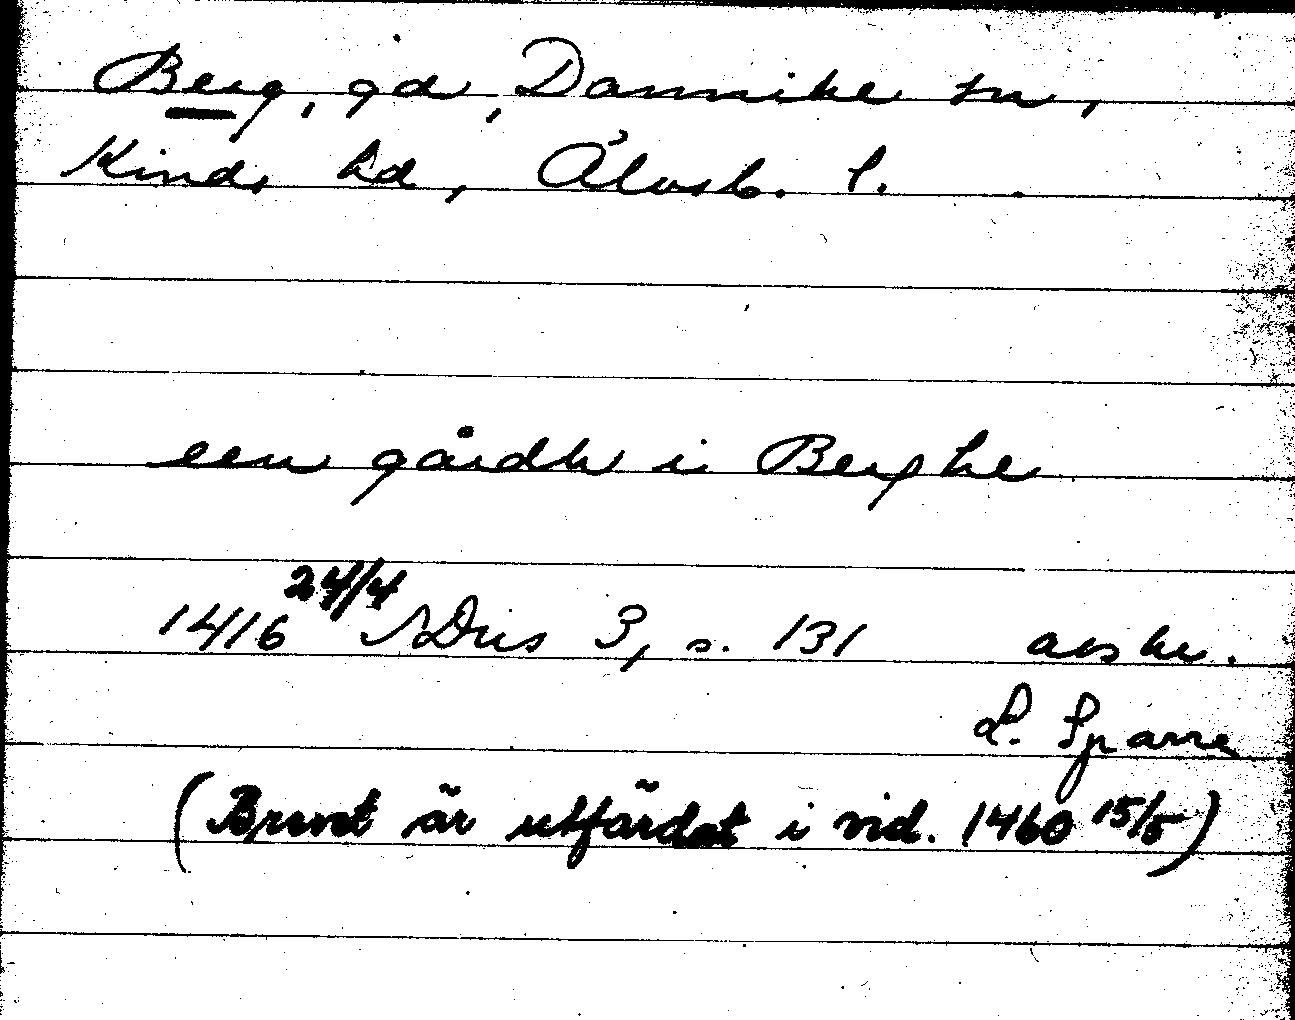 Berg, gd, Dannike sn,
Kinds hd, Älvsb. l.
een gårdh i Berghe
1416 24/4 NDns 3, s. 131 avskr.
L. Sparre
(Brevet är utfärdat i vid. 1460 15/5)